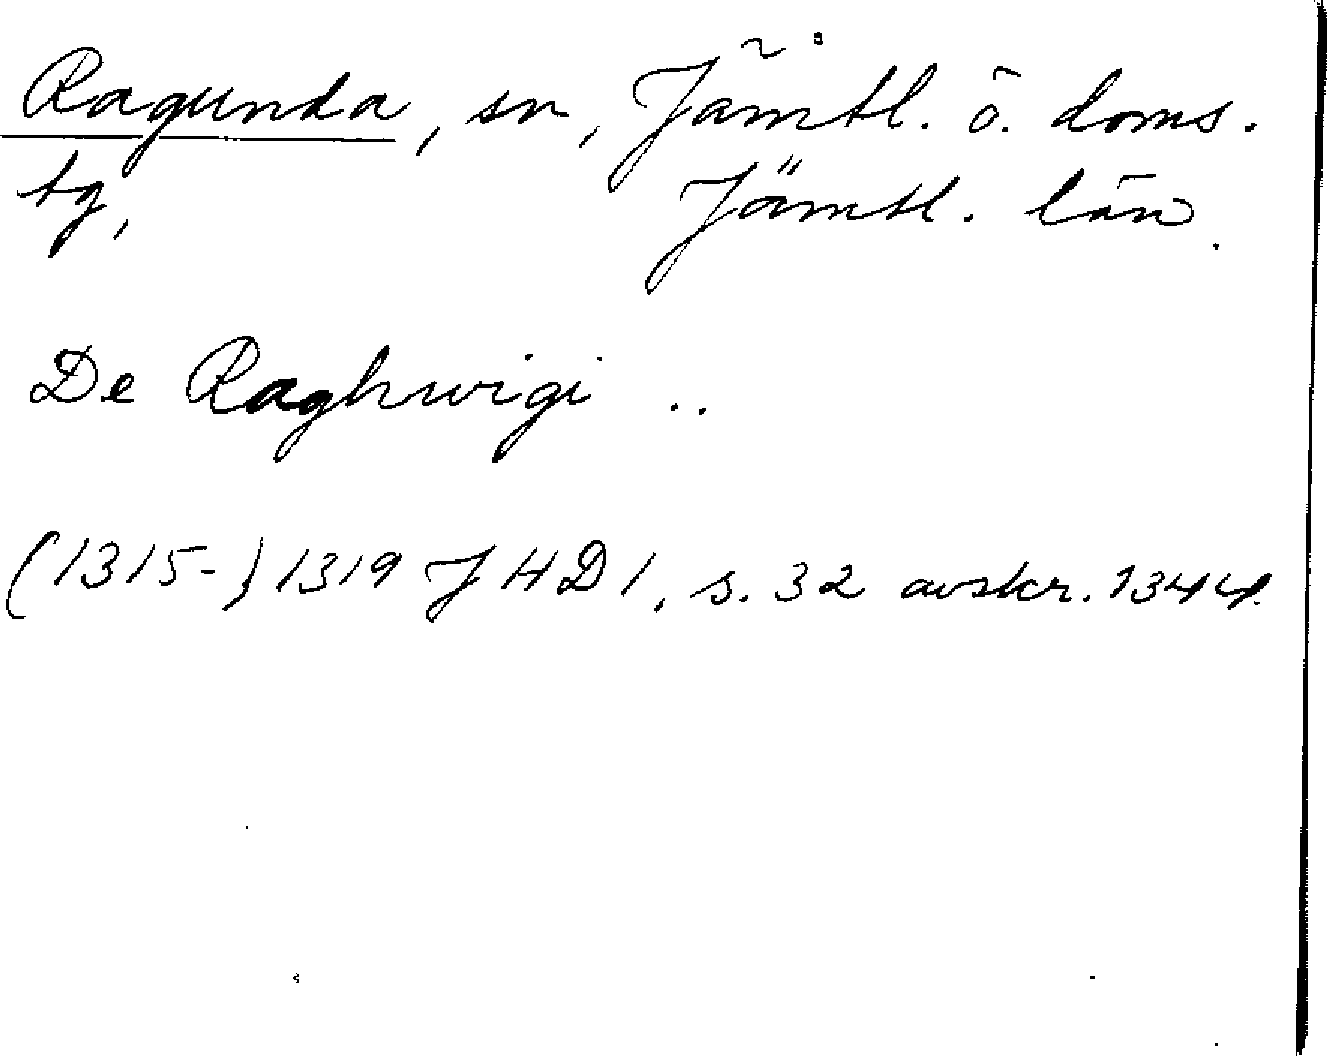 Ragunda, sn, Jämtl. ö. doms.
tg, Jämtl. län.
De Raghwigi ..
(1315-) 1319 J H D 1, s. 32 avskr. 1344.